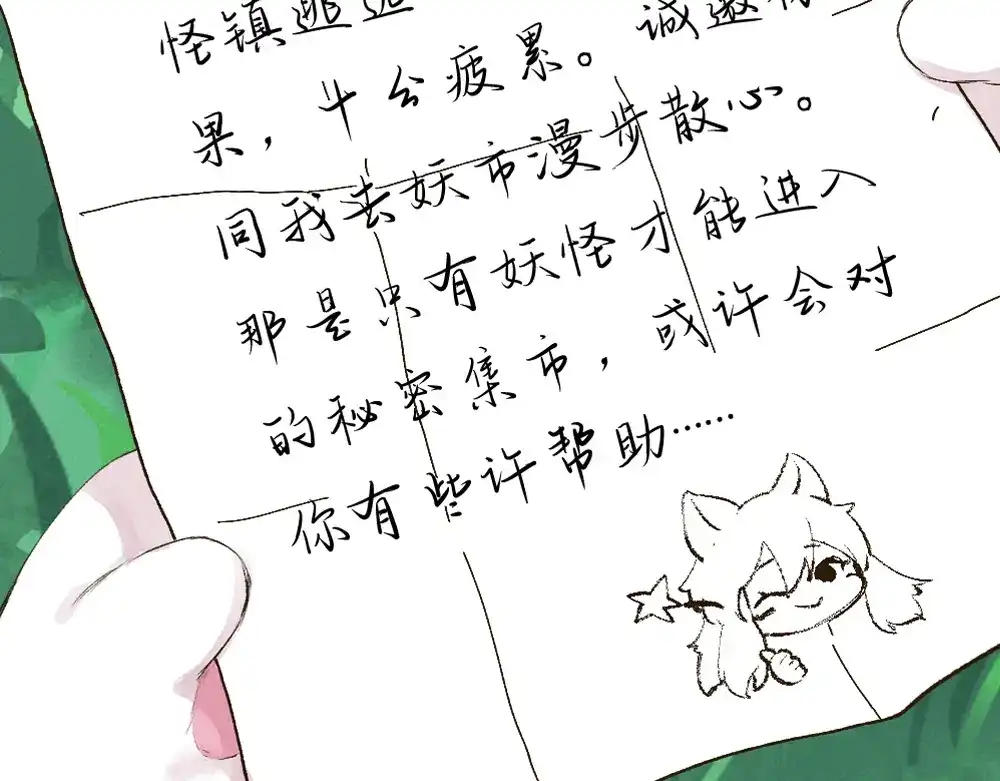 怪镇逃避
果，十分疲累。诚邀
同我去妖市漫步散心。
那是只有妖怪才能进入
的秘密集市，或许会对
你有些许帮助……